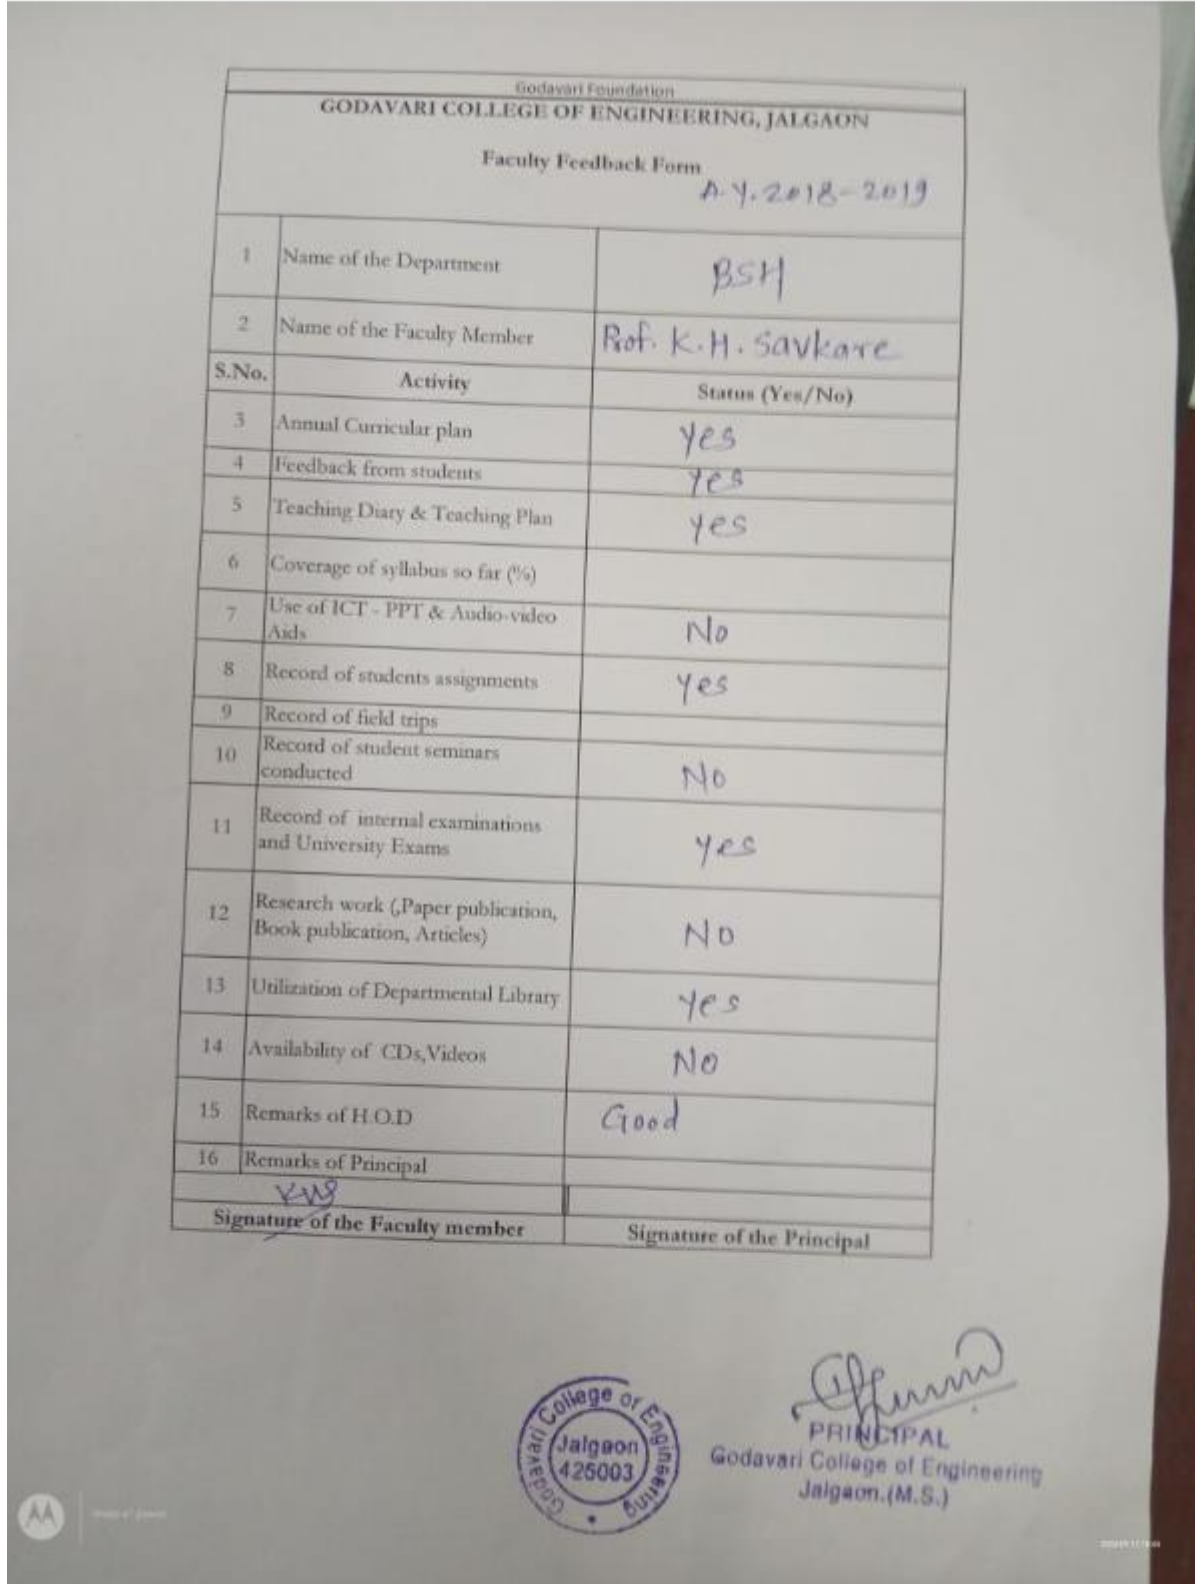 Godavari Foundation
GODAVARI COLLEGE OF ENGINEERING, JALGAON
Faculty Feedback Form
A.Y. 2018-2019
1 Name of the Department BSH
2 Name of the Faculty Member Prof. K.H. Savkare
S.No. Activity Status (Yes/No)
3 Annual Curricular plan Yes
4 Feedback from students Yes
5 Teaching Diary & Teaching Plan Yes
6 Coverage of syllabus so far (%)
7 Use of ICT - PPT & Audio-video
Aids No
8 Record of students assignments Yes
9 Record of field trips
10 Record of student seminars
conducted No
11 Record of internal examinations
and University Exams Yes
12 Research work (,Paper publication,
Book publication, Articles) No
13 Utilization of Departmental Library Yes
14 Availability of CDs,Videos No
15 Remarks of H.O.D Good
16 Remarks of Principal
Signature of the Faculty member Signature of the Principal
Godavari College of Engineering
Jalgaon
425003
PRINCIPAL
Godavari College of Engineering
Jalgaon.(M.S.)